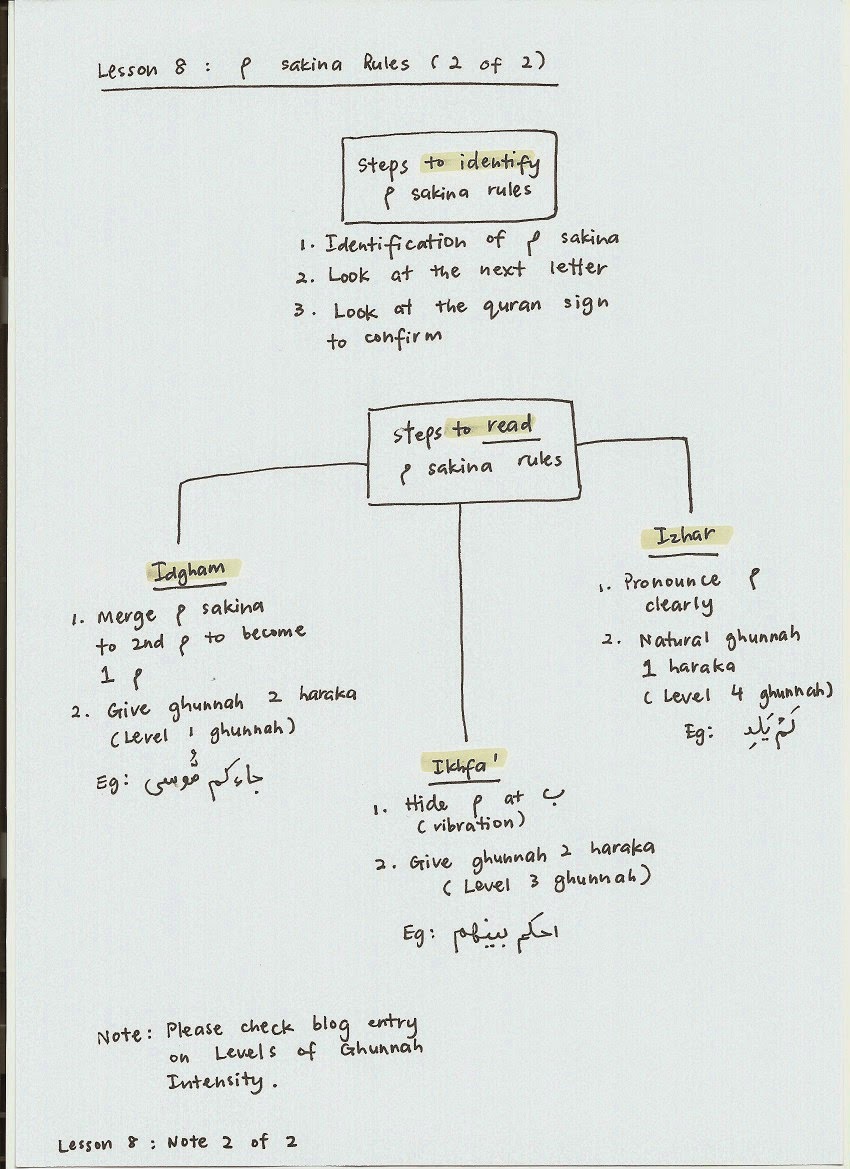 Lesson 8 : م sakina Rules (2 of 2)
Steps to identify
م sakina rules
1. Identification of م sakina
2. Look at the next letter
3. Look at the quran sign
to confirm
Steps to read
م sakina rules
Idgham
1. Merge م sakina
to 2nd م to become
1 م
2. Give ghunnah 2 haraka
(Level 1 ghunnah)
Eg: جاءكم مُّوسى
Ikhfa'
1. Hide م at ب
(vibration)
2. Give ghunnah 2 haraka
(Level 3 ghunnah)
Eg: احكم بينهم
Izhar
1. Pronounce م
clearly
2. Natural ghunnah
1 haraka
(Level 4 ghunnah)
Eg: لَمْ يَلِدِ
Note: Please check blog entry
on Levels of Ghunnah
Intensity.
Lesson 8 : Note 2 of 2